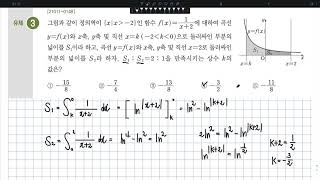 유제 3
[21011-0148]
그림과 같이 정의역이 {x|x>-2}인 함수 f(x)=1/(x+2)에 대하여 곡선
y=f(x)와 x축, y축 및 직선 x=k (-2<k<0)으로 둘러싸인 부분의
넓이를 S₁이라 하고, 곡선 y=f(x)와 x축, y축 및 직선 x=2로 둘러싸인
부분의 넓이를 S₂라 하자. S₁ : S₂=2 : 1을 만족시키는 상수 k의
값은?
① -15/8 ② -7/4 ④ -3/2 ⑤ -11/8
S₁ = ∫ₖ⁰ 1/(x+2) dx = [ln|x+2|]ₖ⁰ = ln2 - ln|k+2|
S₂ = ∫₀² 1/(x+2) dx = ln4 - ln2 = ln2
2ln2 = ln2 - ln|k+2|
ln|k+2| = ln 1/2
k+2 = 1/2
k = -3/2